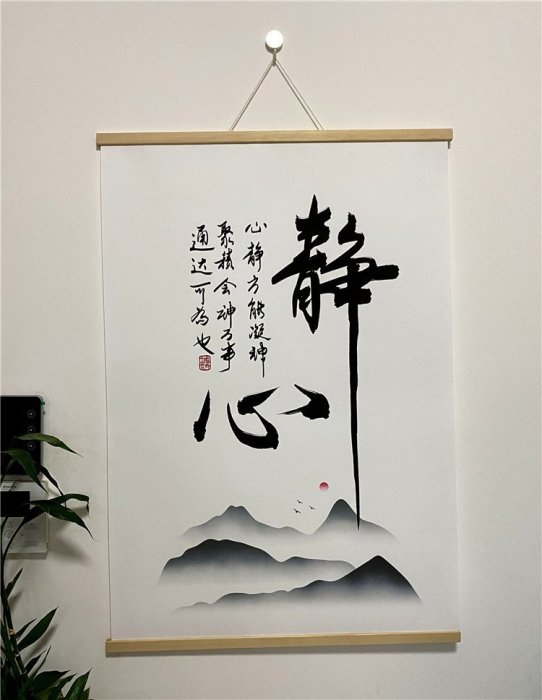 静心
心静方能凝神
聚精会神万事
通达可为也